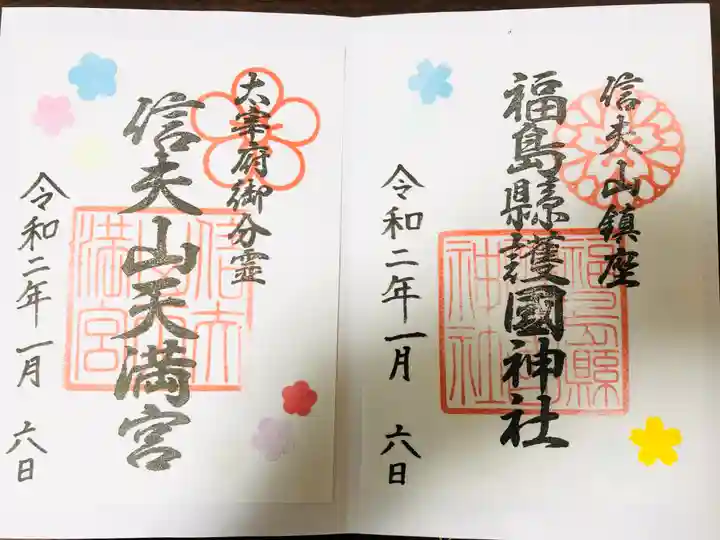 信夫山鎮座
福島縣護國神社
令和二年一月 六日
福島縣
護國
神社
太宰府御分霊
信夫山天満宮
令和二年一月 六日
信夫
山天
満宮